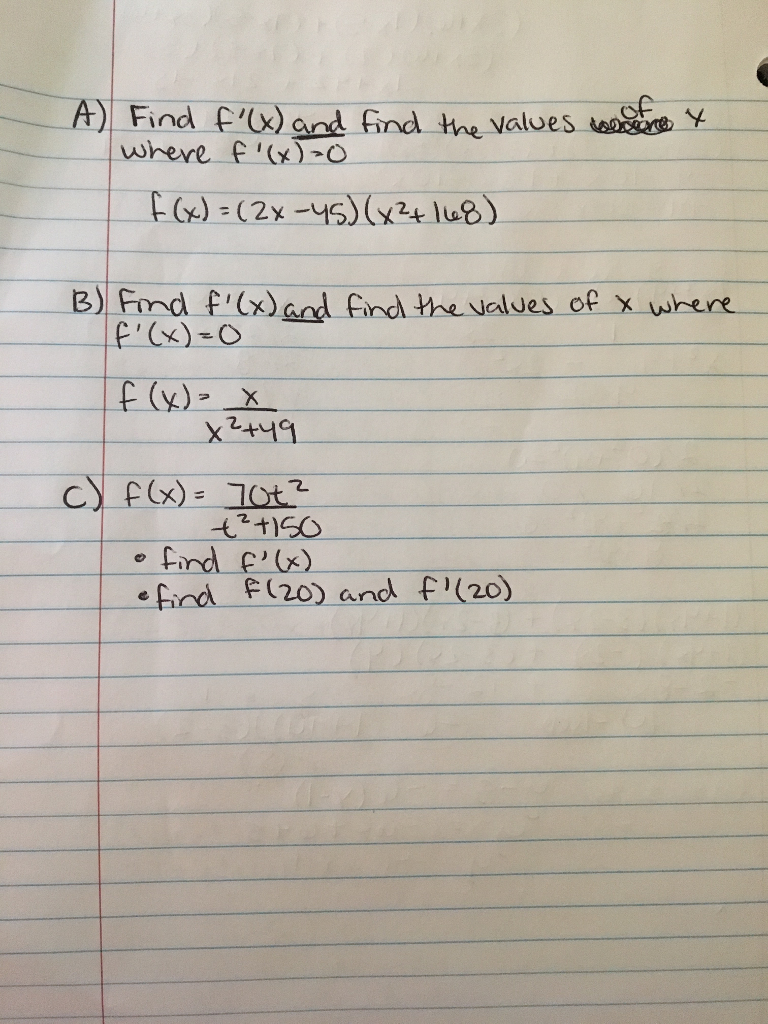 A) Find f'(x) and find the values of x
where f'(x)=0
f(x)=(2x-45)(x²+168)
B) Find f'(x) and find the values of x where
f'(x)=0
f(x)= x
x²+49
C) f(x)= 70t²
t²+150
• find f'(x)
• find f(20) and f'(20)